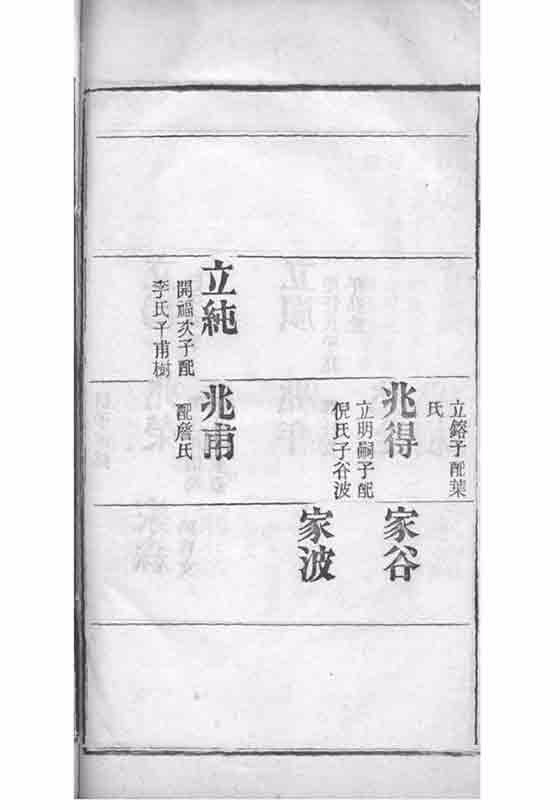 立鎔子配葉
氏
兆得
立明嗣子配
倪氏子谷波
家谷
家波
立純
開福次子配
李氏子甫樹
兆甫
配詹氏